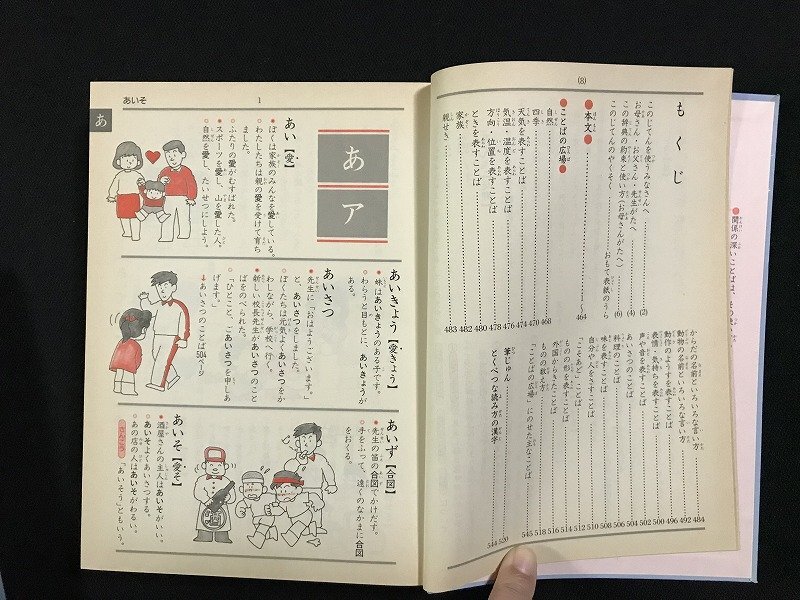 (8)
もくじ
このじてんを使うみなさんへ (2)
お母さん・お父さん・先生がたへ (4)
この辞典の約束と使い方(お母さんがたへ) (6)
このじてんのやくそく おもて表紙のうら
●本文● 1
●ことばの広場● 464
自然
四季 468
天気を表すことば 470
気温・温度を表すことば 474
方向・位置を表すことば 476
ときを表すことば 478
家族 480
親せき 483
からだの名前といろいろな言い方 484
動物の名前といろいろな言い方 492
動作のようすを表すことば 496
表情・気持ちを表すことば 500
声や音を表すことば 502
あいさつのことば 504
料理のことば 506
味を表すことば 508
自分や人をさすことば 510
「こそあど」ことば 512
ものの形を表すことば 514
外国からきたことば 516
ものの数え方 518
「ことばの広場」にのせたまなことば 545
筆じゅん 550
とくべつな読み方の漢字 544
●関係の深いことばは、
あいそ
1
あ
あ
ア
あい【愛】
●ぼくは家族のみんなを愛している。
○わたしたちは親の愛を受けて育ちました。
○ふたりの愛がむすばれた。
●スポーツを愛し、山を愛した人。
○自然を愛し、たいせつにしよう。
あいきょう【愛きょう】
●妹はあいきょうのある子です。
○わらうと目もとに、あいきょうがある。
あいさつ
●先生に「おはようございます。」と、あいさつをしました。
○ぼくたちは元気よくあいさつをかわしながら、学校へ行く。
●新しい校長先生があいさつのことばをのべられた。
○「ひとこと、ごあいさつを申しあげます。」
↓あいさつのことば504ページ
あいず【合図】
●先生の笛の合図でかけだす。
○手をふって、遠くのなかまに合図をおくる。
あいそ【愛そ】
●酒屋さんの主人はあいそがいい。
○あいそよくあいさつする。
●あの店の人はあいそがわるい。
「あいそう」ともいう。